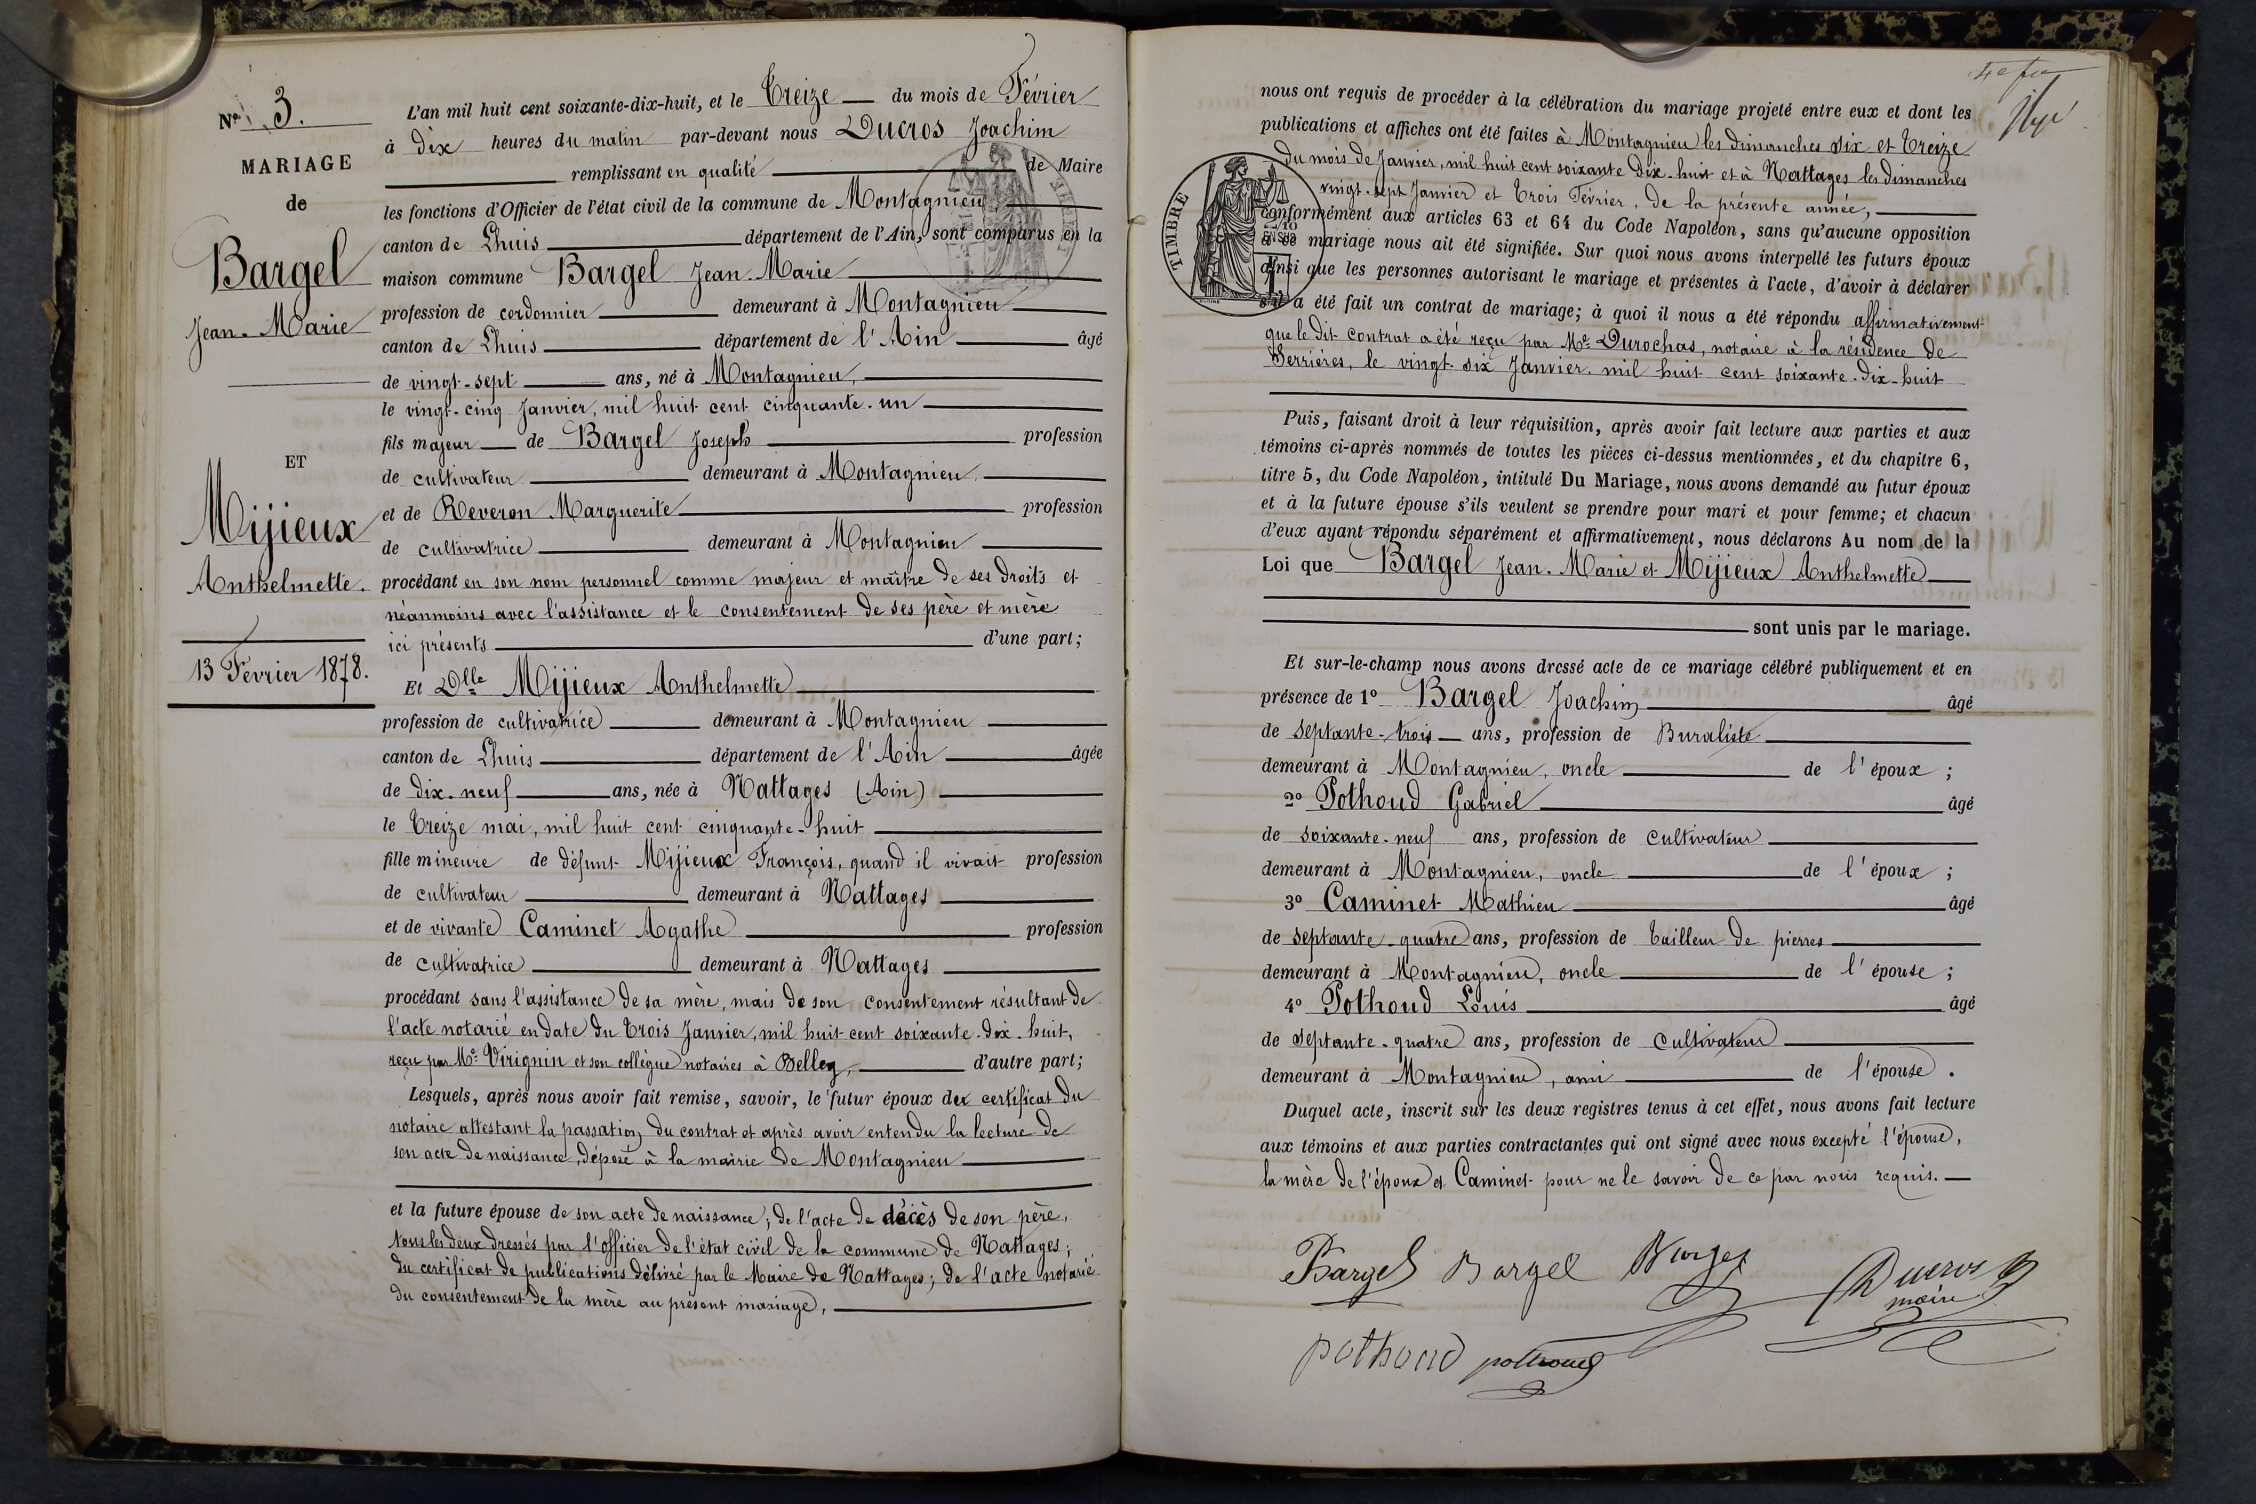 No 3.
MARIAGE
de
Bargel
Jean-Marie
ET
Mijieux
Anthelmette.
13 Février 1878.
L'an mil huit cent soixante-dix-huit, et le Treize du mois de Février
à dix heures du matin par-devant nous Ducros Joachim
remplissant en qualité de Maire
les fonctions d'Officier de l'état civil de la commune de Montagnieu,
canton de Lhuis département de l'Ain, sont comparus en la
maison commune Bargel Jean-Marie
profession de cordonnier demeurant à Montagnieu
canton de Lhuis département de l'Ain âgé
de vingt-sept ans, né à Montagnieu,
le vingt-cinq Janvier, mil huit cent cinquante-un
fils majeur de Bargel Joseph profession
de cultivateur demeurant à Montagnieu
et de Reveron Marguerite profession
de cultivatrice demeurant à Montagnieu
procédant en son nom personnel comme majeur et maître de ses droits et
néanmoins avec l'assistance et le consentement de ses père et mère
ici présents d'une part;
Et Dlle Mijieux Anthelmette
profession de cultivatrice demeurant à Montagnieu
canton de Lhuis département de l'Ain âgée
de dix-neuf ans, née à Nattages (Ain)
le Treize mai, mil huit cent cinquante-huit
fille mineure de défunt Mijieux François, quand il vivait profession
de cultivateur demeurant à Nattages
et de vivante Caminet Agathe profession
de cultivatrice demeurant à Nattages
procédant sans l'assistance de sa mère, mais de son consentement résultant de
l'acte notarié en date du Trois Janvier, mil huit cent soixante-dix-huit,
reçu par Me Virignin et son collègue notaires à Belley, d'autre part;
Lesquels, après nous avoir fait remise, savoir, le futur époux du certificat du
notaire attestant la passation du contrat et après avoir entendu la lecture de
son acte de naissance, déposé à la mairie de Montagnieu
et la future épouse de son acte de naissance; de l'acte de décès de son père,
tous les deux dressés par l'officier de l'état civil de la commune de Nattages;
du certificat de publications délivré par le Maire de Nattages; de l'acte notarié
du consentement de la mère au présent mariage,
nous ont requis de procéder à la célébration du mariage projeté entre eux et dont les
publications et affiches ont été faites à Montagnieu les dimanches six et Treize
du mois de Janvier, mil huit cent soixante dix-huit et à Nattages les dimanches
vingt-sept Janvier et Trois Février, de la présente année,
TIMBRE
conformément aux articles 63 et 64 du Code Napoléon, sans qu'aucune opposition
à ce mariage nous ait été signifiée. Sur quoi nous avons interpellé les futurs époux
ainsi que les personnes autorisant le mariage et présentes à l'acte, d'avoir à déclarer
s'il a été fait un contrat de mariage; à quoi il nous a été répondu affirmativement
que le dit contrat a été reçu par Me Durochas, notaire à la résidence de
Serrières, le vingt-six Janvier, mil huit cent soixante-dix-huit
Puis, faisant droit à leur réquisition, après avoir fait lecture aux parties et aux
témoins ci-après nommés de toutes les pièces ci-dessus mentionnées, et du chapitre 6,
titre 5, du Code Napoléon, intitulé Du Mariage, nous avons demandé au futur époux
et à la future épouse s'ils veulent se prendre pour mari et pour femme; et chacun
d'eux ayant répondu séparément et affirmativement, nous déclarons Au nom de la
Loi que Bargel Jean-Marie et Mijieux Anthelmette
sont unis par le mariage.
Et sur-le-champ nous avons dressé acte de ce mariage célébré publiquement et en
présence de 1o Bargel Joachim âgé
de septante-trois ans, profession de Buraliste
demeurant à Montagnieu, oncle de l'époux;
2o Pothoud Gabriel âgé
de soixante-neuf ans, profession de cultivateur
demeurant à Montagnieu, oncle de l'époux;
3o Caminet Mathieu âgé
de septante-quatre ans, profession de Tailleur de pierres
demeurant à Montagnieu, oncle de l'épouse;
4o Pothoud Louis âgé
de septante-quatre ans, profession de cultivateur
demeurant à Montagnieu, ami de l'épouse.
Duquel acte, inscrit sur les deux registres tenus à cet effet, nous avons fait lecture
aux témoins et aux parties contractantes qui ont signé avec nous excepté l'épouse,
la mère de l'époux et Caminet pour ne le savoir de ce par nous requis.
Bargel Bargel Bargel Ducros
maire
pothoud pothoud